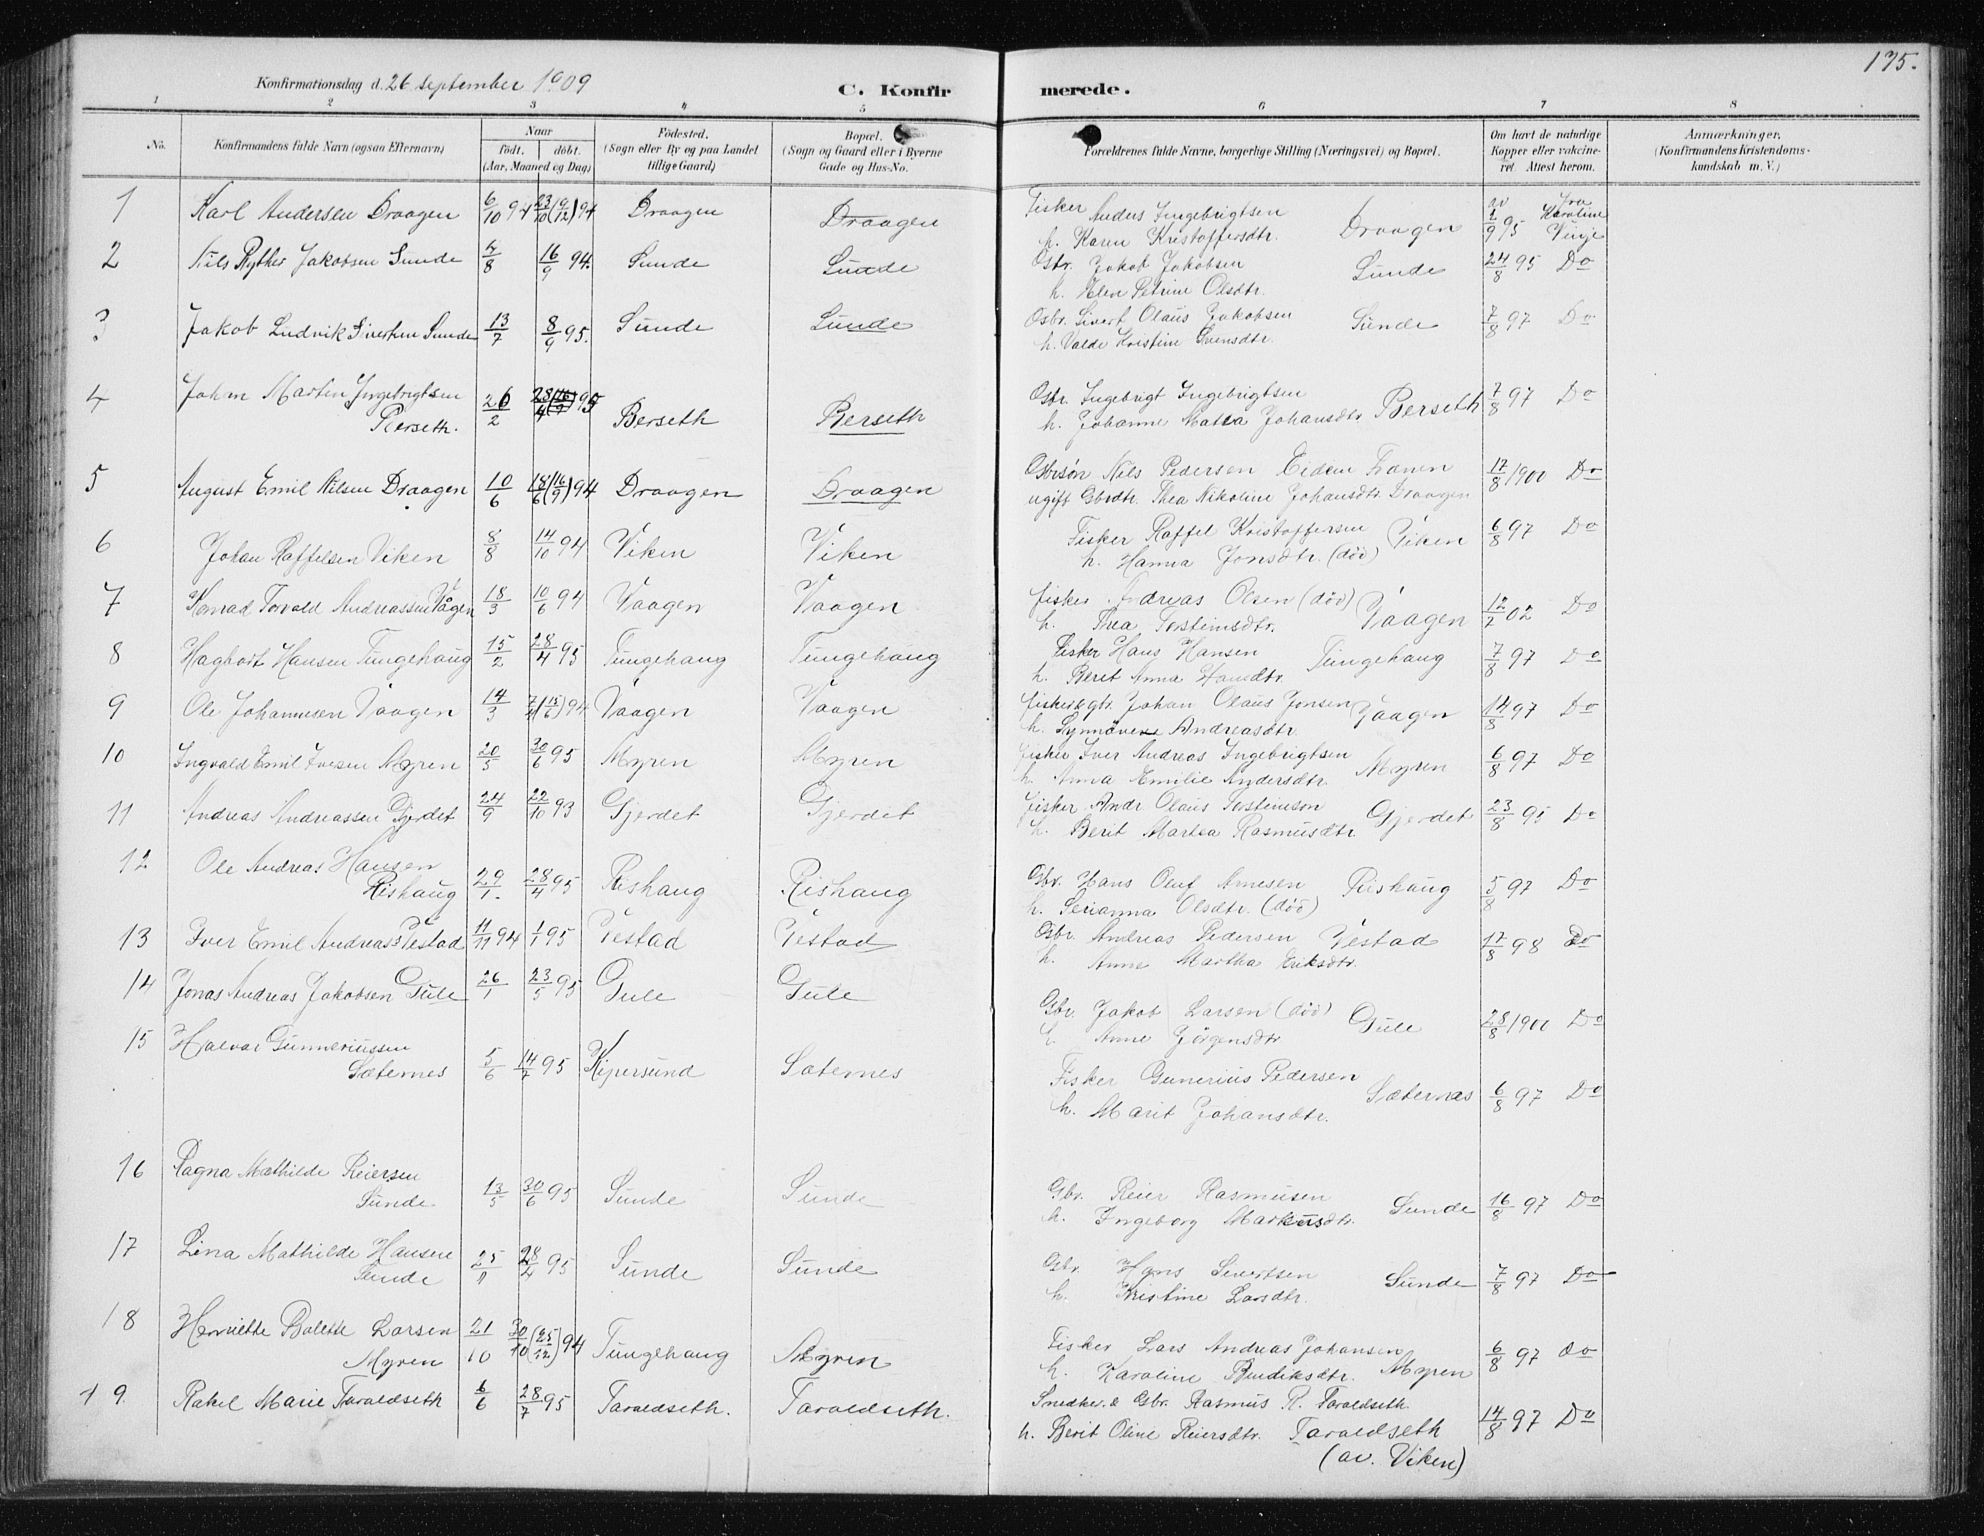 175.
Konfirmationsdag d. 26 september 1909
C. Konfirmerede.
1 2 3 4 5 6 7 8
No.
Konfirmandens fulde Navn (ogsaa Efternavn)
Naar
födt. döbt.
(Aar, Maaned og Dag)
Födested.
(Sogn eller By og paa Landet
tillige Gaard)
Bopæl.
(Sogn og Gaard eller i Byerne
Gade og Hus-No.
Forældrenes fulde Navne, borgerlige Stilling (Næringsvei) og Bopæl.
Om havt de naturlige
Kopper eller vakcine-
ret. Attest herom.
Anmærkninger.
(Konfirmandens Kristendoms-
kundskab m. V.)
1 Karl Andersen Draagen 6/10 94 23/10 (9/12) 94 Draagen Draagen Fisker Anders Ingebrigtsen
h. Karen Kristoffersdtr. Draagen 2/9 95 av fra Karoline Vinje
2 Nils Ryther Jakobsen Sunde 4/8 16/9 94. Sunde Sunde Gbr. Jakob Jakobsen
h. Elen Petrine Olsdtr. Sunde 24/8 95 Do
3 Jakob Ludvik Sivertsen Sunde 13/7 8/9 95. Sunde Sunde Gbr. Sivert Olaus Jakobsen
h. Valde Kristine Svensdtr. Sunde 7/8 97 Do
4 Johan Martin Ingebrigtsen
Berseth. 26/2 28/4 95 Berseth Berseth Gbr. Ingebrigt Ingebrigtsen
h. Johanne Matea Johansdtr. Berseth 7/8 97 Do
5 August Emil Nilsen Draagen 10/6 18/6 (16/9) 94 Draagen Draagen Gbrsøn Nils Pedersen Eidem Franen
ugift Gbrdtr. Thea Nikoline Johansdtr. Draagen 17/8 1900 Do
6 Johan Raffelsen Viken 8/8 14/10 94 Viken Viken Fisker Raffel Kristoffersen
h. Hanna Jonsdtr. (död) Viken 6/8 97 Do
7 Konrad Torvald Andreassen Vågen 18/3 10/6 94 Vaagen Vaagen fisker Andreas Olsen (död)
h. Thea Torsteinsdtr. Vaagen 12/7 02 Do
8 Hagbart Hansen Tungehaug 15/2 28/4 95 Tungehaug Tungehaug Fisker Hans Hansen
h. Berit Anna Hansdtr. Tungehaug 7/8 97 Do
9 Ole Johannesen Vaagen 14/3 7/4 (15/6) 94 Vaagen Vaagen fisker & gbr. Johan Olaus Jonsen
h. Synnöve Andreasdtr. Vaagen 14/8 97 Do
10 Ingvald Emil Iversen Myren 20/5 30/6 95 Myren Myren fisker Iver Andreas Ingebrigtsen
h. Anna Emilie Andersdtr. Myren 6/8 97 Do
11 Andreas Andreassen Gjerdet 24/9 22/10 93 Gjerdet Gjerdet fisker Andr Olaus Torsteinson
h. Berit Martea Rasmusdtr Gjerdet 23/8 95 Do
12 Ole Andreas Hansen
Rishaug 29/1. 28/4 95 Rishaug Rishaug Gbr. Hans Oluf Arnesen
h. Serianna Olsdtr. (död) Rishaug 5/8 97 Do
13 Iver Emil Andreass. Vestad 11/11 94 1/1 95 Vestad Vestad Gbr. Andreas Pedersen
h. Anne Martha Eriksdtr. Vestad 17/8 98 Do
14 Jonas Andreas Jakobsen Gule 26/1 23/5 95 Gule Gule Gbr. Jakob Larsen (död)
h. Anne Jörgensdtr Gule 28/8 1900 Do
15 Halvar Gunneriussen
Sæternes 5/6 14/7 95 Kipersund Sæternes Fisker Gunerius Pedersen
h. Marit Johansdtr. Sæternæs 6/8 97 Do
16 Ragna Mathilde Reiersen
Sunde. 13/5 30/6 95 Sunde Sunde Gbr. Reier Rasmusen
h. Ingeborg Markusdtr. Sunde 16/8 97 Do
17 Lina Mathilde Hansen
Sunde 25/1 28/4 95 Sunde Sunde Gbr. Hans Sivertsen
h. Kristine Larsdtr. Sunde 7/8 97 Do
18 Henriette Bolette Larsen
Myren 21/10 30/10 (25/12) 94 Tungehaug Myren Fisker Lars Andreas Johansen
h. Karoline Bendiksdtr. Myren 6/8 97 do
19. Rakel Marie Taraldseth 6/6 28/7 95 Taraldseth. Taraldseth. Snedker & Gbr. Rasmus R. Taraldseth
h. Berit Oline Reiersdtr. Taraldseth 14/8 97 Do
(av. Viken)